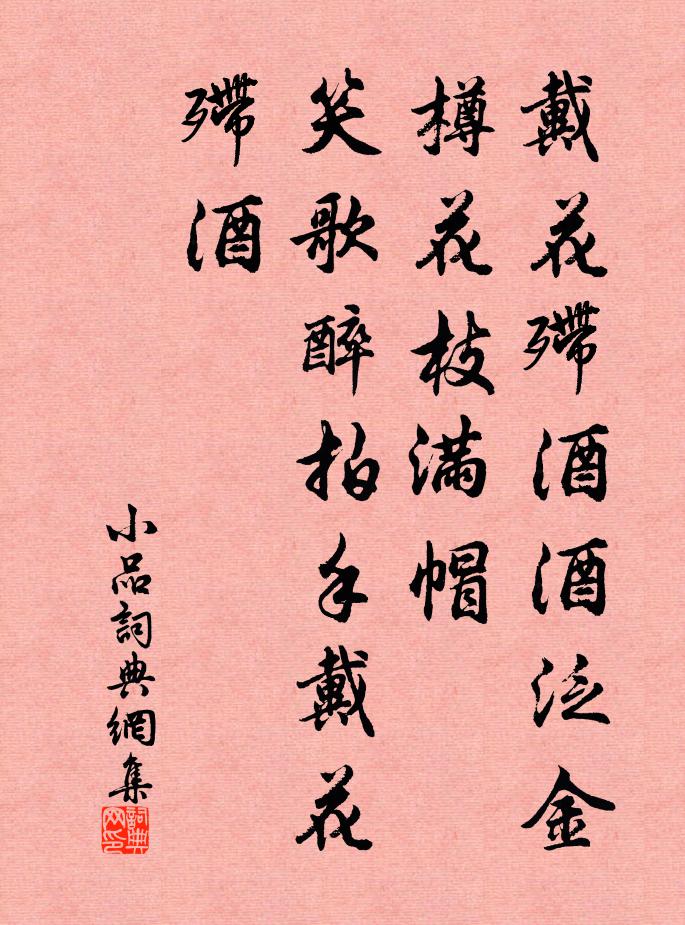 戴花殢酒酒泛金
樽花枝滿帽
笑歌醉拍手戴花
殢酒
小品詞典網集
詞典網印